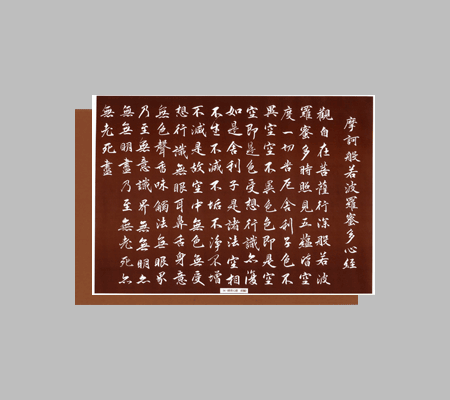 摩訶般若波羅蜜多心経
觀自在菩薩行深般若波
羅蜜多時照見五蘊皆空
度一切苦厄舍利子色不
異空空不異色色即是空
空即是色受想行識亦復
如是舍利子是諸法空相
不生不滅不垢不淨不增
不減是故空中無色無受
想行識無眼耳鼻舌身意
無色聲香味觸法無眼界
乃至無意識界無無明亦
無無明盡乃至無老死亦
無老死盡